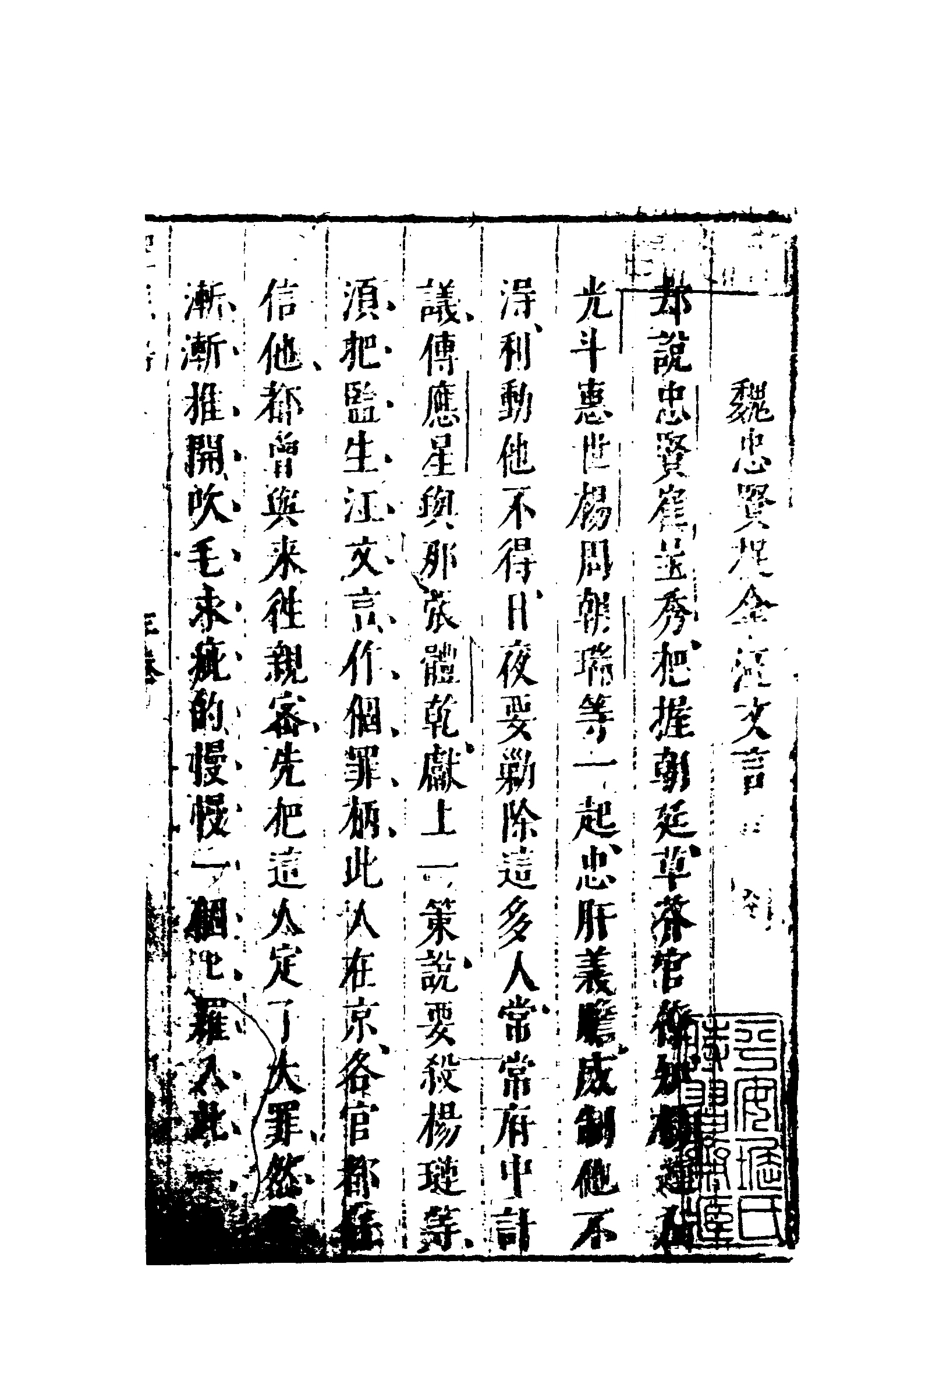 魏忠賢捉拿汪文言
却說忠賢崔呈秀把握朝廷草芥官僚知楊漣左
光斗惠世楊周朝瑞等一起忠肝義膽威制他不
得利動他不得日夜要勦除這多人常常府中計
議傳應星與那張體乾獻上一策說要殺楊璉等
須把監生汪文言作個罪柄此人在京各官都
信他都曾與来徃親審先把這人定了大罪然
漸漸推開吹毛求疵的慢慢一個個羅入此